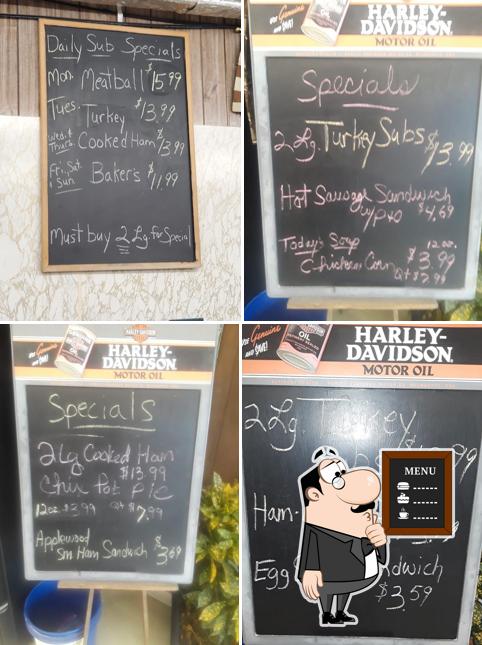 Daily Sub Specials
Mon. Meatball $15.99
Tues. Turkey $13.99
Wed. & Thurs Cooked Ham $13.99
Fri., Sat. & Sun Baker's $11.99
Must buy 2 Lg. for Special
Use Genuine and SAVE!
HARLEY-DAVIDSON
MOTOR OIL
Specials
2 Lg. Turkey Subs $13.99
Hot Sausage Sandwich
w/P&O $4.69
Today's Soup 12 oz.
Chicken Corn $3.99
Qt $7.99
Use Genuine and SAVE!
HARLEY-DAVIDSON
MOTOR OIL
Specials
2 Lg Cooked Ham
$13.99
Chix Pot Pie
12 oz $3.99 Qt $7.99
Applewood
Sm Ham Sandwich $3.69
Use Genuine and SAVE!
OIL
HARLEY-DAVIDSON
MOTOR OIL
2 Lg. Turkey
Ham
MENU
Egg
dwich
$3.59